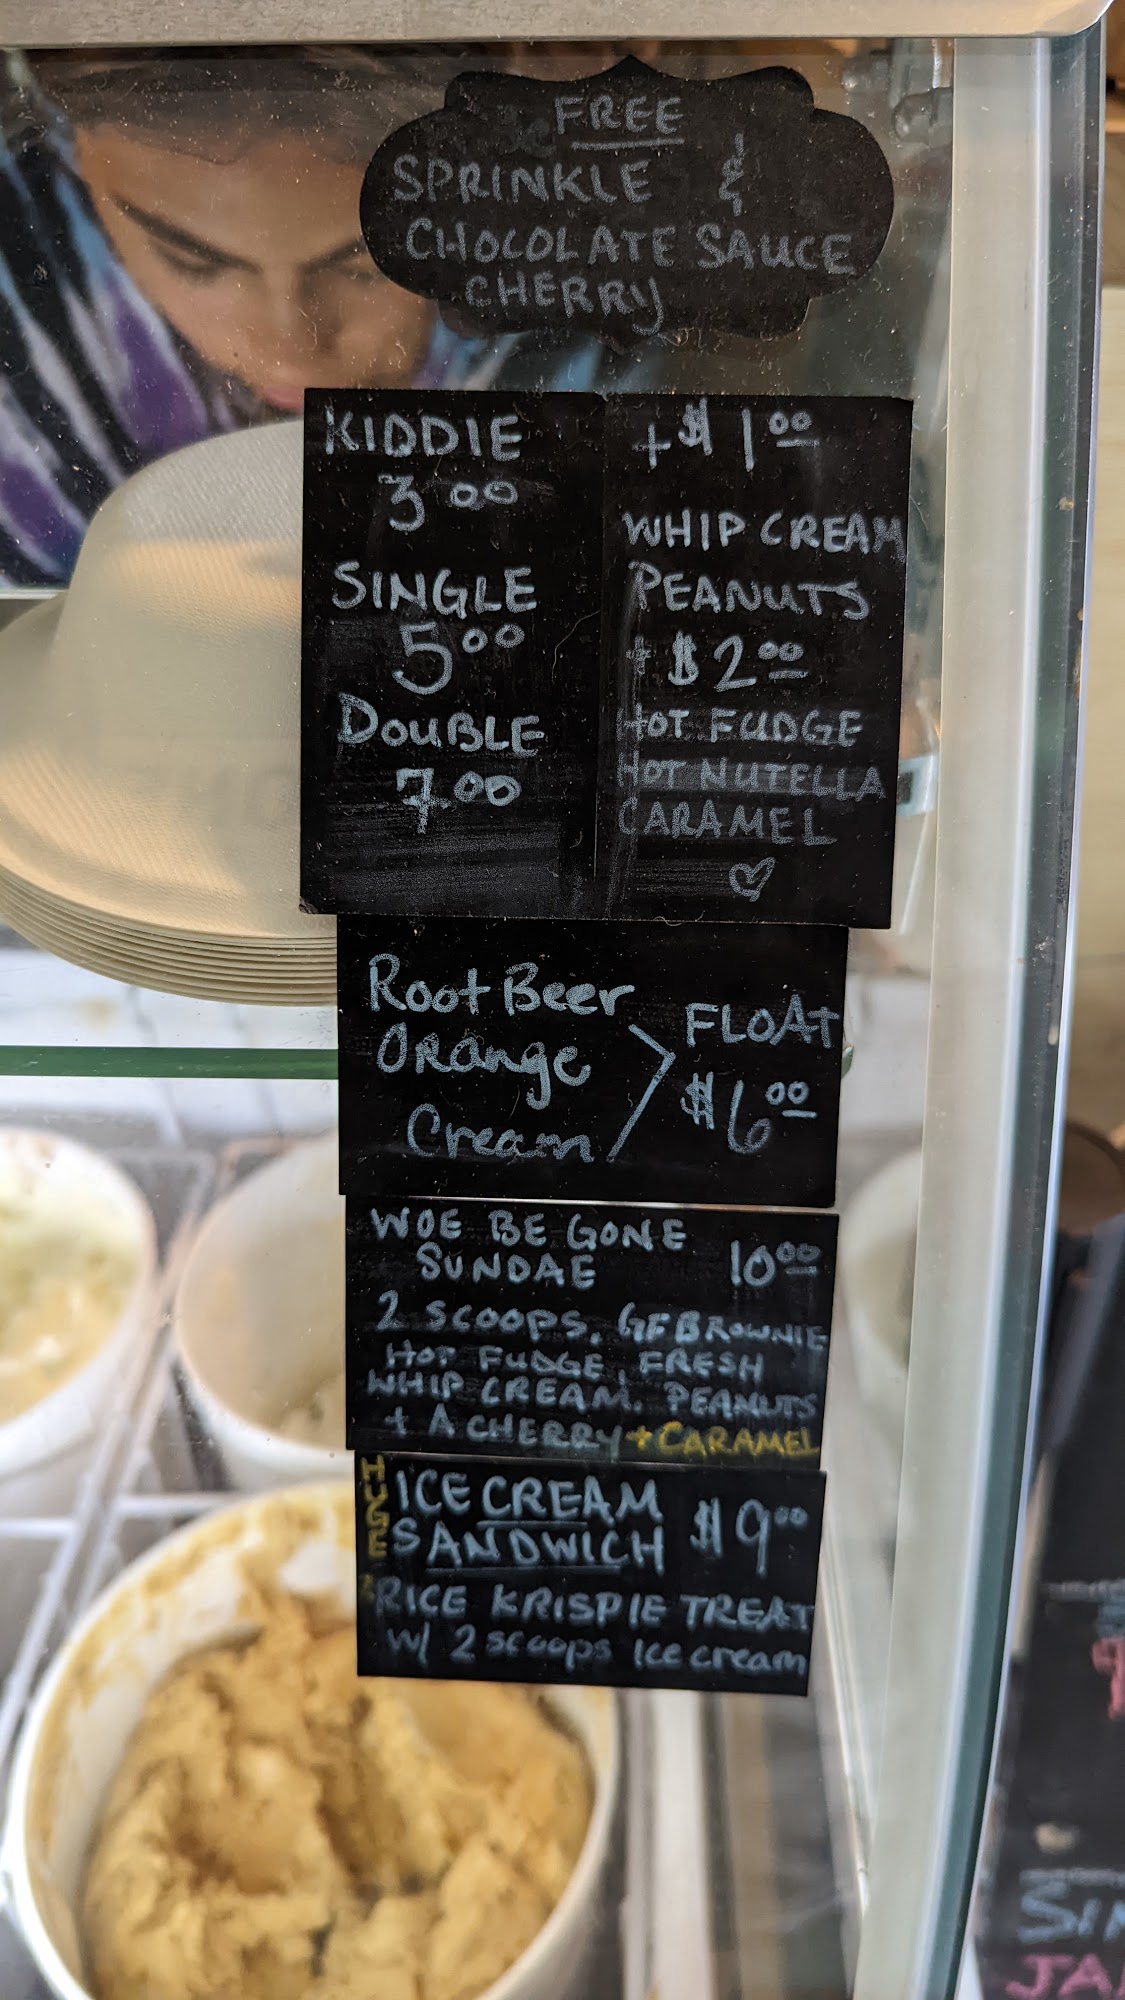 FREE
SPRINKLE &
CHOCOLATE SAUCE
CHERRY
KIDDIE
3 00
SINGLE
5 00
DOUBLE
7 00
+ $1 00
WHIP CREAM
PEANUTS
+ $2 00
HOT FUDGE
HOT NUTELLA
CARAMEL
Root Beer
Orange
Cream
FLOAT
$6 00
WOE BE GONE
SUNDAE 10 00
2 SCOOPS, GF BROWNIE
HOT FUDGE, FRESH
WHIP CREAM, PEANUTS
+ A CHERRY + CARAMEL
HUGE
ICE CREAM
SANDWICH $9 00
RICE KRISPIE TREAT
w/ 2 scoops Ice cream